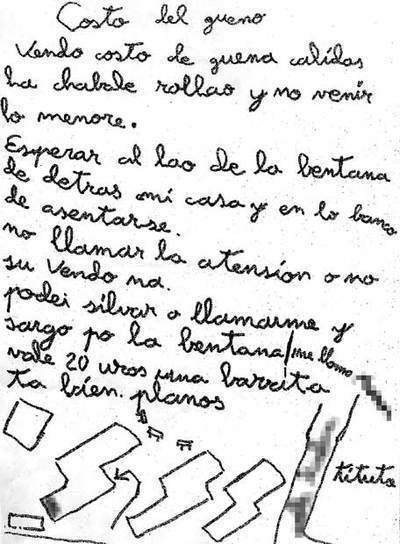 Costo del gueno
Vendo costo de guena calidas
ha chabale rollao y no venir
lo menore.
Esperar al lao de la bentana
de detras mi casa y en lo banco
de asentarse.
no llamar la atension o no
su Vendo na.
podei silvar o llamarme y
sargo po la bentana/me llamo
vale 20 uros una barrita
ta bien. planos
tituta